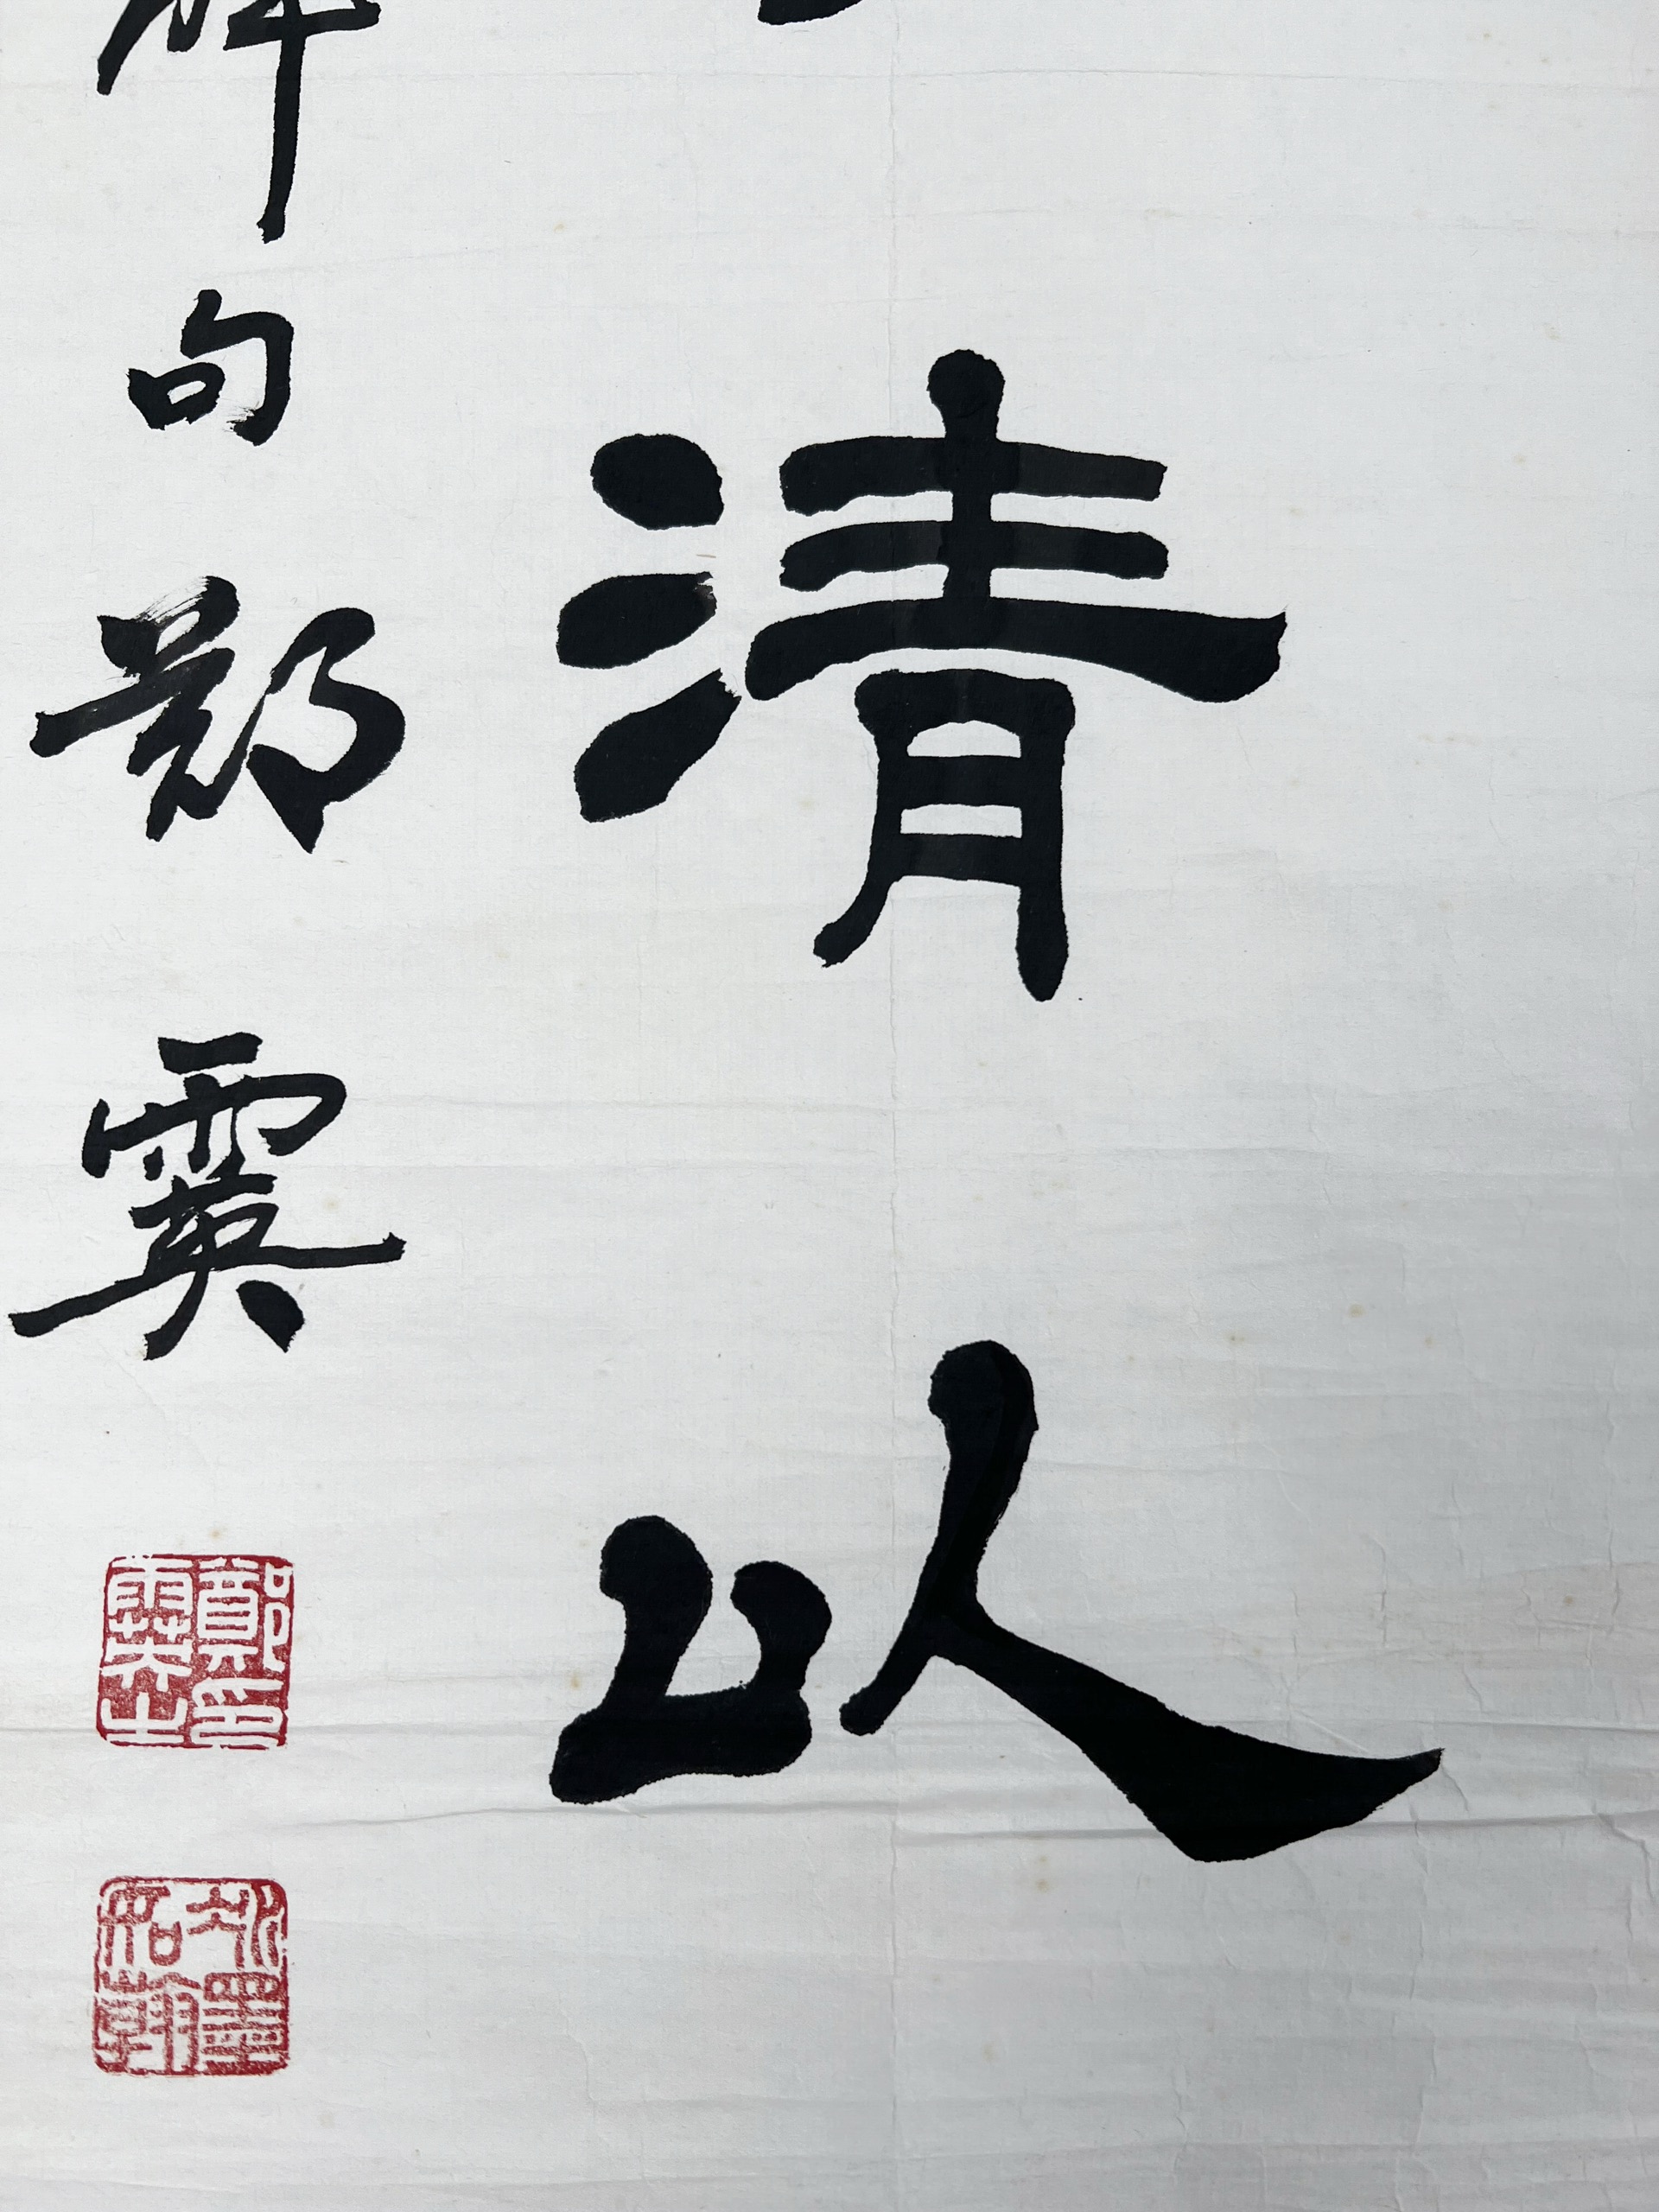 清以
句鄭霙
鄭霙之印